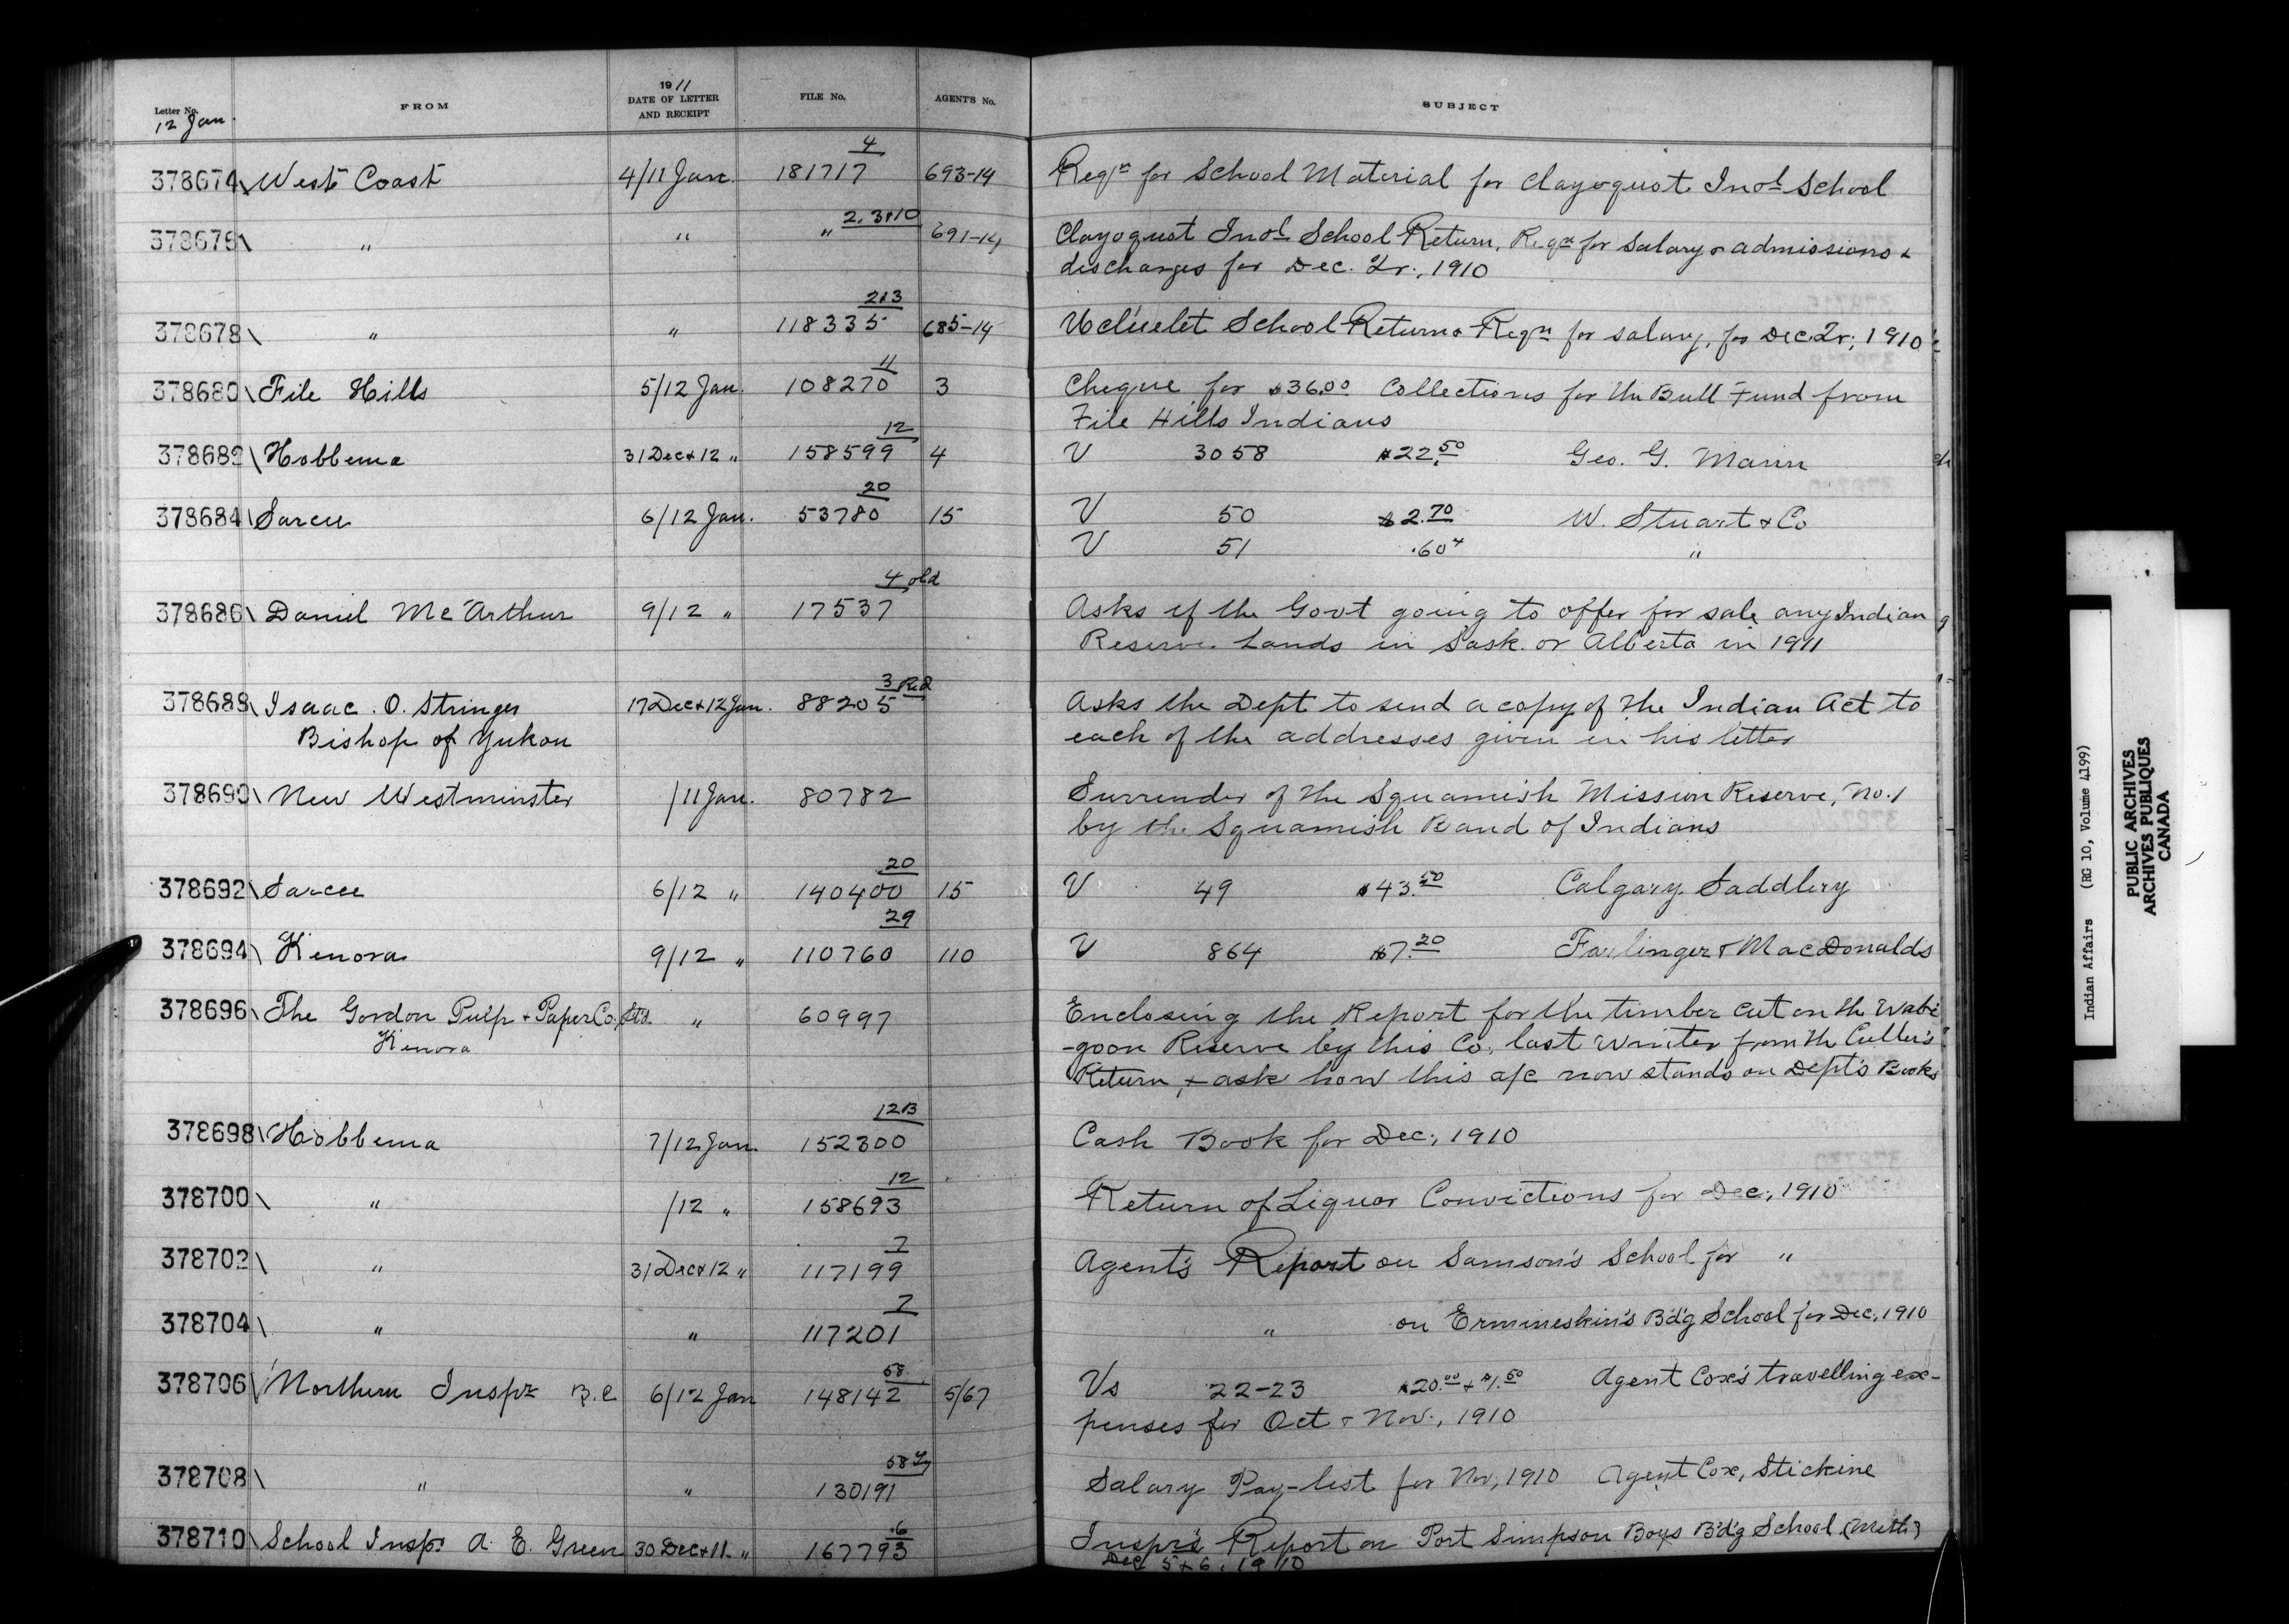 Letter No. FROM 1911 DATE OF LETTER AND RECEIPT FILE No. AGENT'S No. SUBJECT
12 Jan.
378674 West Coast 4/11 Jan. 181717 4 693-14 Reqn for School Material for Clayoquot Indl School
378676 " " " 2, 3 & 10 691-14 Clayoquot Indl School Return, Reqn for Salary & admissions &
discharges for Dec. Qr., 1910
378678 " " 118335 2&3 685-14 Ucluelet School Return & Reqn for salary, for Dec. Qr., 1910
378680 File Hills 5/12 Jan. 108270 11 3 Cheque for $36.00 Collections for the Bull Fund from
File Hills Indians
378682 Hobbema 31 Dec & 12 " 158599 12 4 V 3058 $22.50 Geo. G. Mann
378684 Sarcee 6/12 Jan. 53780 20 15 V 50 $2.70 W. Stuart & Co
V 51 .60 "
378686 Daniel McArthur 9/12 " 17537 4 old Asks if the Govt going to offer for sale any Indian
Reserve Lands in Sask. or Alberta in 1911
378688 Isaac O. Stringer 17 Dec & 12 Jan. 88205 3 Red Asks the Dept to send a copy of the Indian Act to
Bishop of Yukon each of the addresses given in his letter
378690 New Westminster /11 Jan. 80782 Surrender of the Squamish Mission Reserve, No. 1
by the Squamish Band of Indians
378692 Sarcee 6/12 " 140400 20 15 V 49 $43.50 Calgary Saddlery
378694 Kenora 9/12 " 110760 29 110 V 864 $7.20 Farlinger & MacDonalds
378696 The Gordon Pulp & Paper Co., Ltd. " 60997 Enclosing the Report for the timber cut on the Wabi-
Kenora -goon Reserve by this Co. last Winter from the Culler's
Return, & ask how this a/c now stands on Dept's Books
378698 Hobbema 7/12 Jan. 152300 12B Cash Book for Dec., 1910
378700 " /12 " 158693 12 Return of Liquor Convictions for Dec., 1910
378702 " 31 Dec & 12 " 117199 7 Agent's Report on Samson's School for "
378704 " " 117201 7 " on Ermineskin's B'd'g School for Dec., 1910
378706 Northern Inspr B.C. 6/12 Jan 148142 58 5/67 Vs 22-23 $20.00 & $1.50 Agent Cox's travelling ex-
penses for Oct & Nov., 1910
378708 " " 130191 58 Salary Pay-list for Nov, 1910 Agent Cox, Stickine
378710 School Inspr A. E. Green 30 Dec & 11 " 167793 6 Inspr's Report on Port Simpson Boys B'd'g School (Meth)
Dec 5 & 6, 1910
Indian Affairs (RG 10, Volume 4199)
PUBLIC ARCHIVES
ARCHIVES PUBLIQUES
CANADA